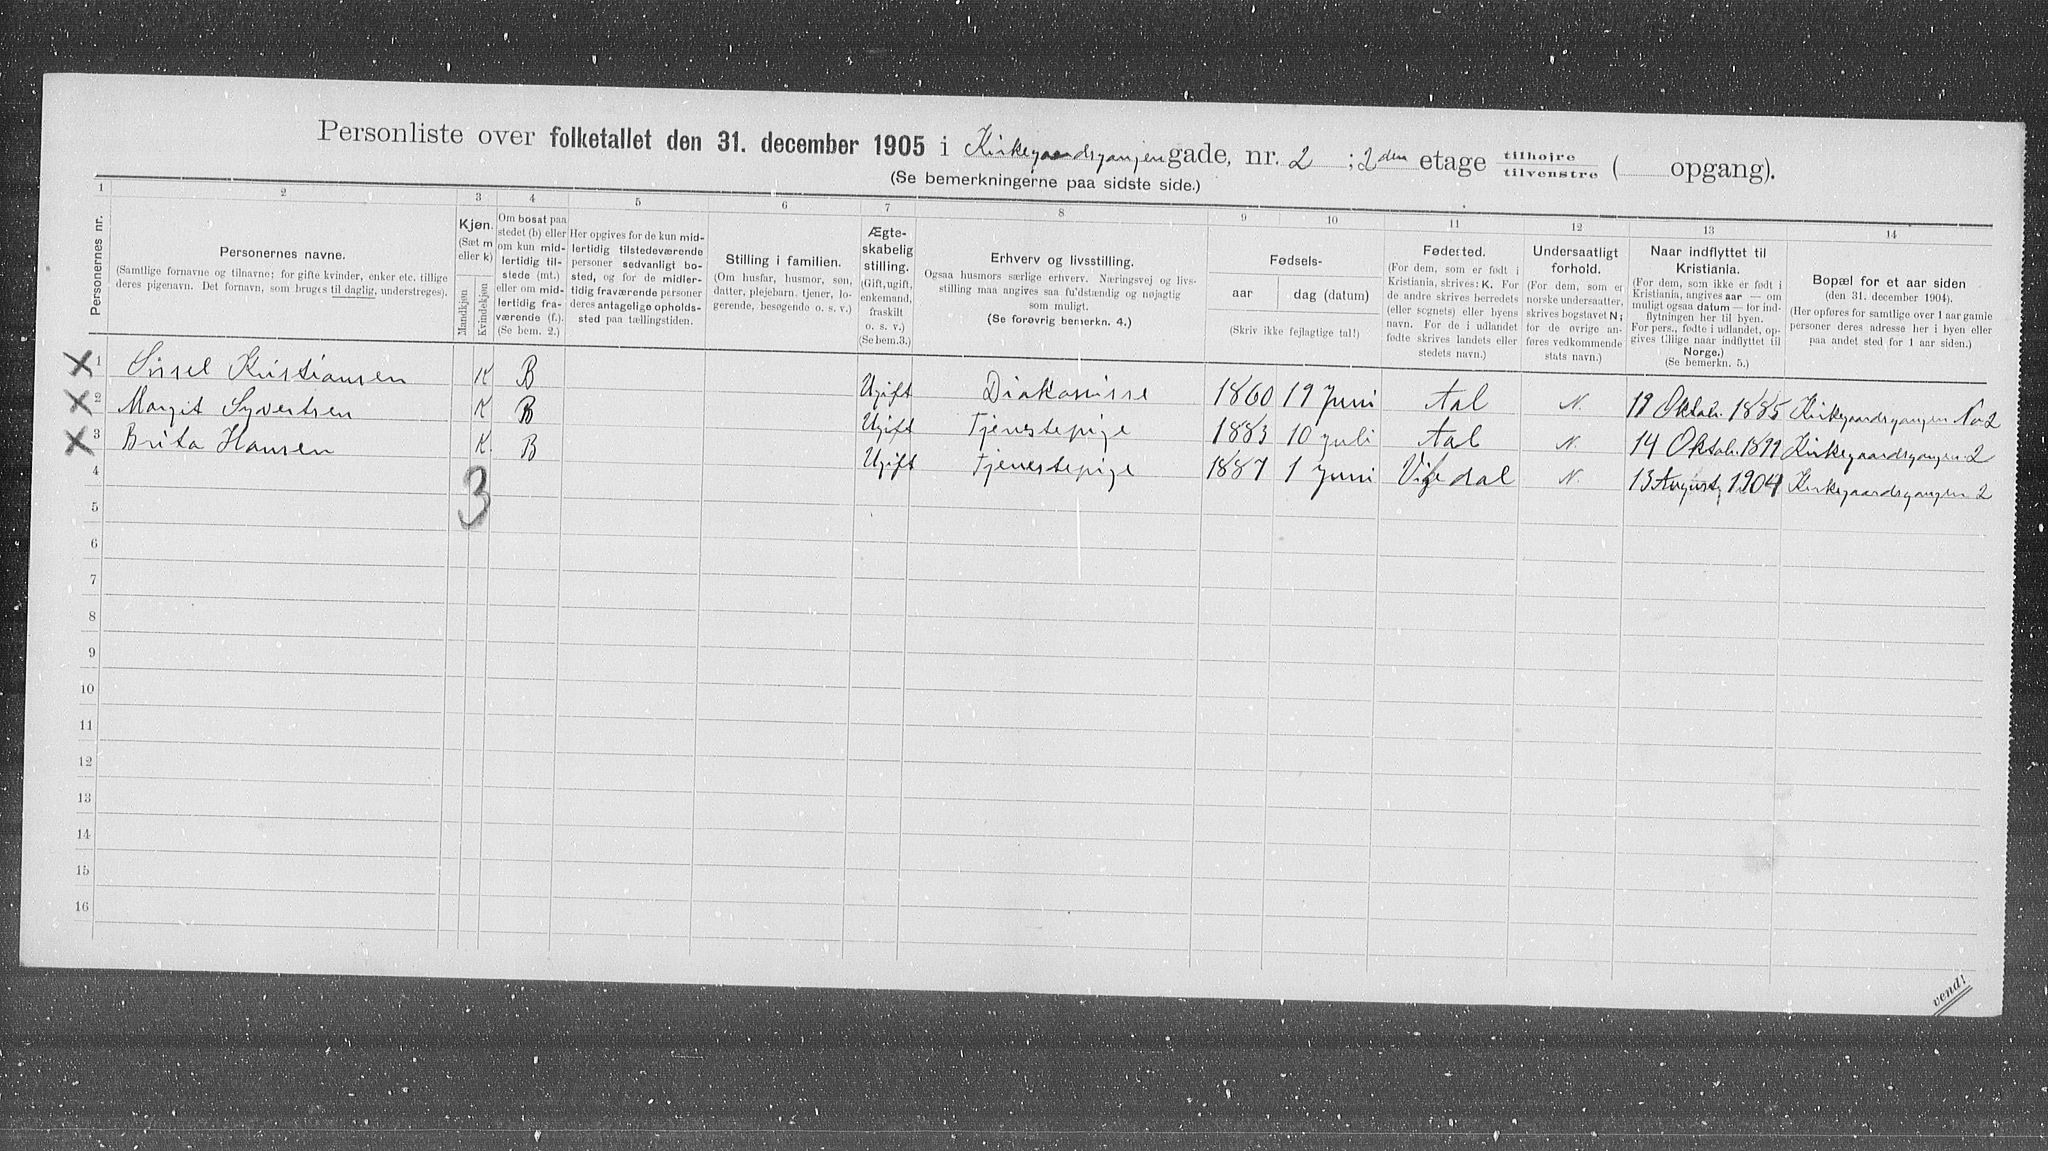 Personliste over folketallet den 31. december 1905 i Kirkegaardsgangen gade, nr. 2 ; 2den etage tilhøjre tilvenstre ( opgang).
(Se bemerkningerne paa sidste side.)
1 2 3 4 5 6 7 8 9 10 11 12 13 14
Personernes nr.
Personernes navne.
(Samtlige fornavne og tilnavne; for gifte kvinder, enker etc. tillige deres pigenavn. Det fornavn, som bruges til daglig, understreges).
Kjøn.
(Sæt m eller k)
Mandkjøn
Kvindekjøn
Om bosat paa stedet (b) eller om kun midlertidig tilstede (mt.) eller om midlertidig fraværende (f.). (Se bem. 2.)
Her opgives for de kun midlertidig tilstedeværende personer sedvanligt bosted, og for de midlertidig fraværende personer deres antagelige opholdssted paa tællingstiden.
Stilling i familien.
(Om husfar, husmor, søn, datter, plejebarn, tjener, logerende, besøgende o. s. v.)
Ægteskabelig stilling.
(Gift, ugift, enkemand, fraskilt o. s. v.)
(Se bem.3.)
Erhverv og livsstilling.
Ogsaa husmors særlige erhverv. Næringsvej og livsstilling maa angives saa fu'dstændig og nøjagtig som muligt.
(Se forøvrig bemerkn. 4.)
Fødsels-
aar
dag (datum)
(Skriv ikke fejlagtige tal!)
Fødested.
(For dem, som er født i Kristiania, skrives: K. For de andre skrives herredets (eller sognets) eller byens navn. For de i udlandet fødte skrives landets eller stedets navn.)
Undersaatligt forhold.
(For dem, som er norske undersaatter, skrives bogstavet N; for de øvrige anføres vedkommende stats navn.)
Naar indflyttet til Kristiania.
(For dem, som ikke er født i Kristiania, angives aar — om muligt ogsaa datum — for indflytningen her til byen. For pers., fødte i udlandet, opgives tillige naar indflyttet til Norge.)
(Se bemerkn. 5.)
Bopæl for et aar siden
(den 31. december 1904).
(Her opføres for samtlige over 1 aar gamle personer deres adresse her i byen eller paa andet sted for 1 aar siden.)
X 1 Sissel Kristiansen K B Ugift Diakonisse 1860 19 Juni Aal N. 19 Oktob. 1885 Kirkegaardsgangen No 2
X 2 Margit Syvertsen K B Ugift Tjenestepige 1883 10 juli Aal N. 14 Oktob. 1899 Kirkegaardsgangen 2
X 3 Brita Hansen K. B Ugift Tjenestepige 1887 1 Juni Vigedal N. 13 August 1904 Kirkegaardsgangen 2
4
3
5
6
7
8
9
10
11
12
13
14
15
16
vend!